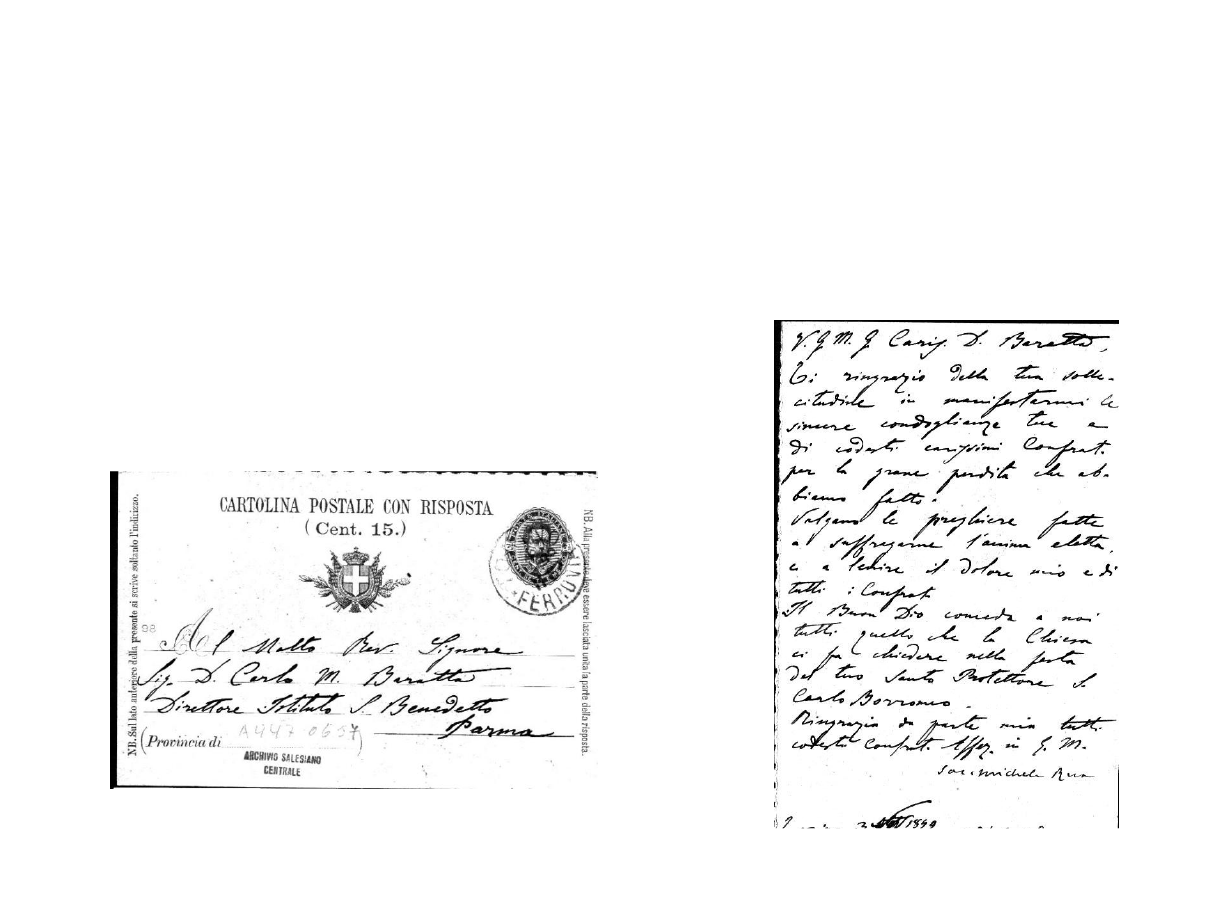 CARTOLINA POSTALE CON RISPOSTA
(Cent. 15.)
NB. Sul lato anteriore della presente si scrive soltanto l'indirizzo.
NB. Alla presente deve essere lasciata unita la parte della risposta.
FERROVI
98
Al Molto Rev. Signore
Sig. D. Carlo M. Baratta
Direttore Istituto S. Benedetto
Parma
A447 0657
(Provincia di )
ARCHIVIO SALESIANO
CENTRALE
V. G. M. G. Cariss. D. Baratta,
Ti ringrazio della tua solle-
citudine in manifestarmi le
sincere condoglianze tue e
di codesti carissimi Confrat.
per la grave perdita che ab-
biamo fatto.
Valgano le preghiere fatte
a suffragarne l'anima eletta,
e a lenire il dolore mio e di
tutti i Confrat.
Il Buon Dio conceda a noi
tutti quello che la Chiesa
ci fa chiedere nella festa
del tuo Santo Protettore S.
Carlo Borromeo.
Ringrazia da parte mia tutti
codesti Confrat. Affez. in G. M.
Sac. Michele Rua
1899